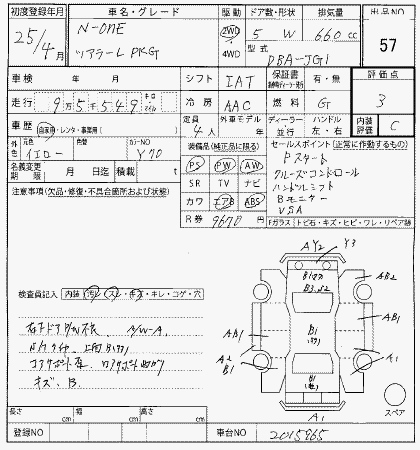 初度登録年月 車名・グレード 駆動 ドア数・形状 排気量 出品NO
25/4月 N-ONE 2WD 5 W 660cc 57
ツアラーL PKG 4WD 型式 DBA-JG1
車検 年 月 シフト IAT 保証書 有・無 評価点
走行 9万5千549 キロ 冷房 AAC 燃料 G 3
車歴 自家用・レンタ・事業用( ) 定員 4人 外車モデル ディーラー 並行 ハンドル 左・右 内装評価 C
外色 元色 イエロー 色替 カラーNO Y70
装備品(純正品に限る) セールスポイント(正常に作動するもの)
名義変更期限 月 日迄 積載 t
PS PW AW
SR TV ナビ
カワ エアB ABS
R券 9670円
Pスタート
クルーズコントロール
ハンドルリミット
Bモニター
VSA
注意事項(欠品・修復・不具合箇所および状態)
Fガラス トビ石・キズ・ヒビ・ワレ・リペア跡
検査員記入 内装 汚レ・スレ・キズ・キレ・コゲ・穴
A/W-A,
キズ、B.
AY2 Y3
AB2
AB1
AB1
B1
A2
B1
A1
B1
A1
スペア
長さ cm 幅 cm 高さ cm
登録NO 車台NO 2015865